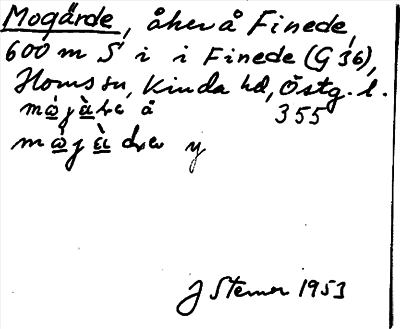 Mogärde, åker å Finede,
600 m S i i Finede (G 36),
Horns sn, Kinda hd, Östg. l.
å 355
y
J Sterner 1953